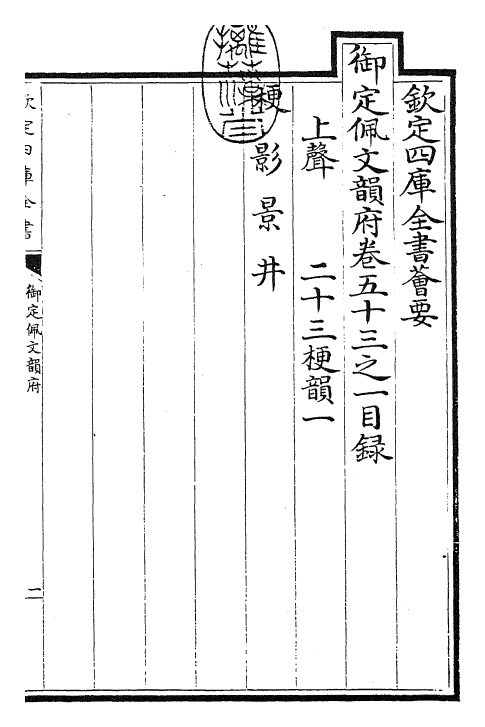 欽定四庫全書薈要
御定佩文韻府卷五十三之一目録
上聲　二十三梗韻一
梗影景井
欽定四庫全書
御定佩文韻府
二